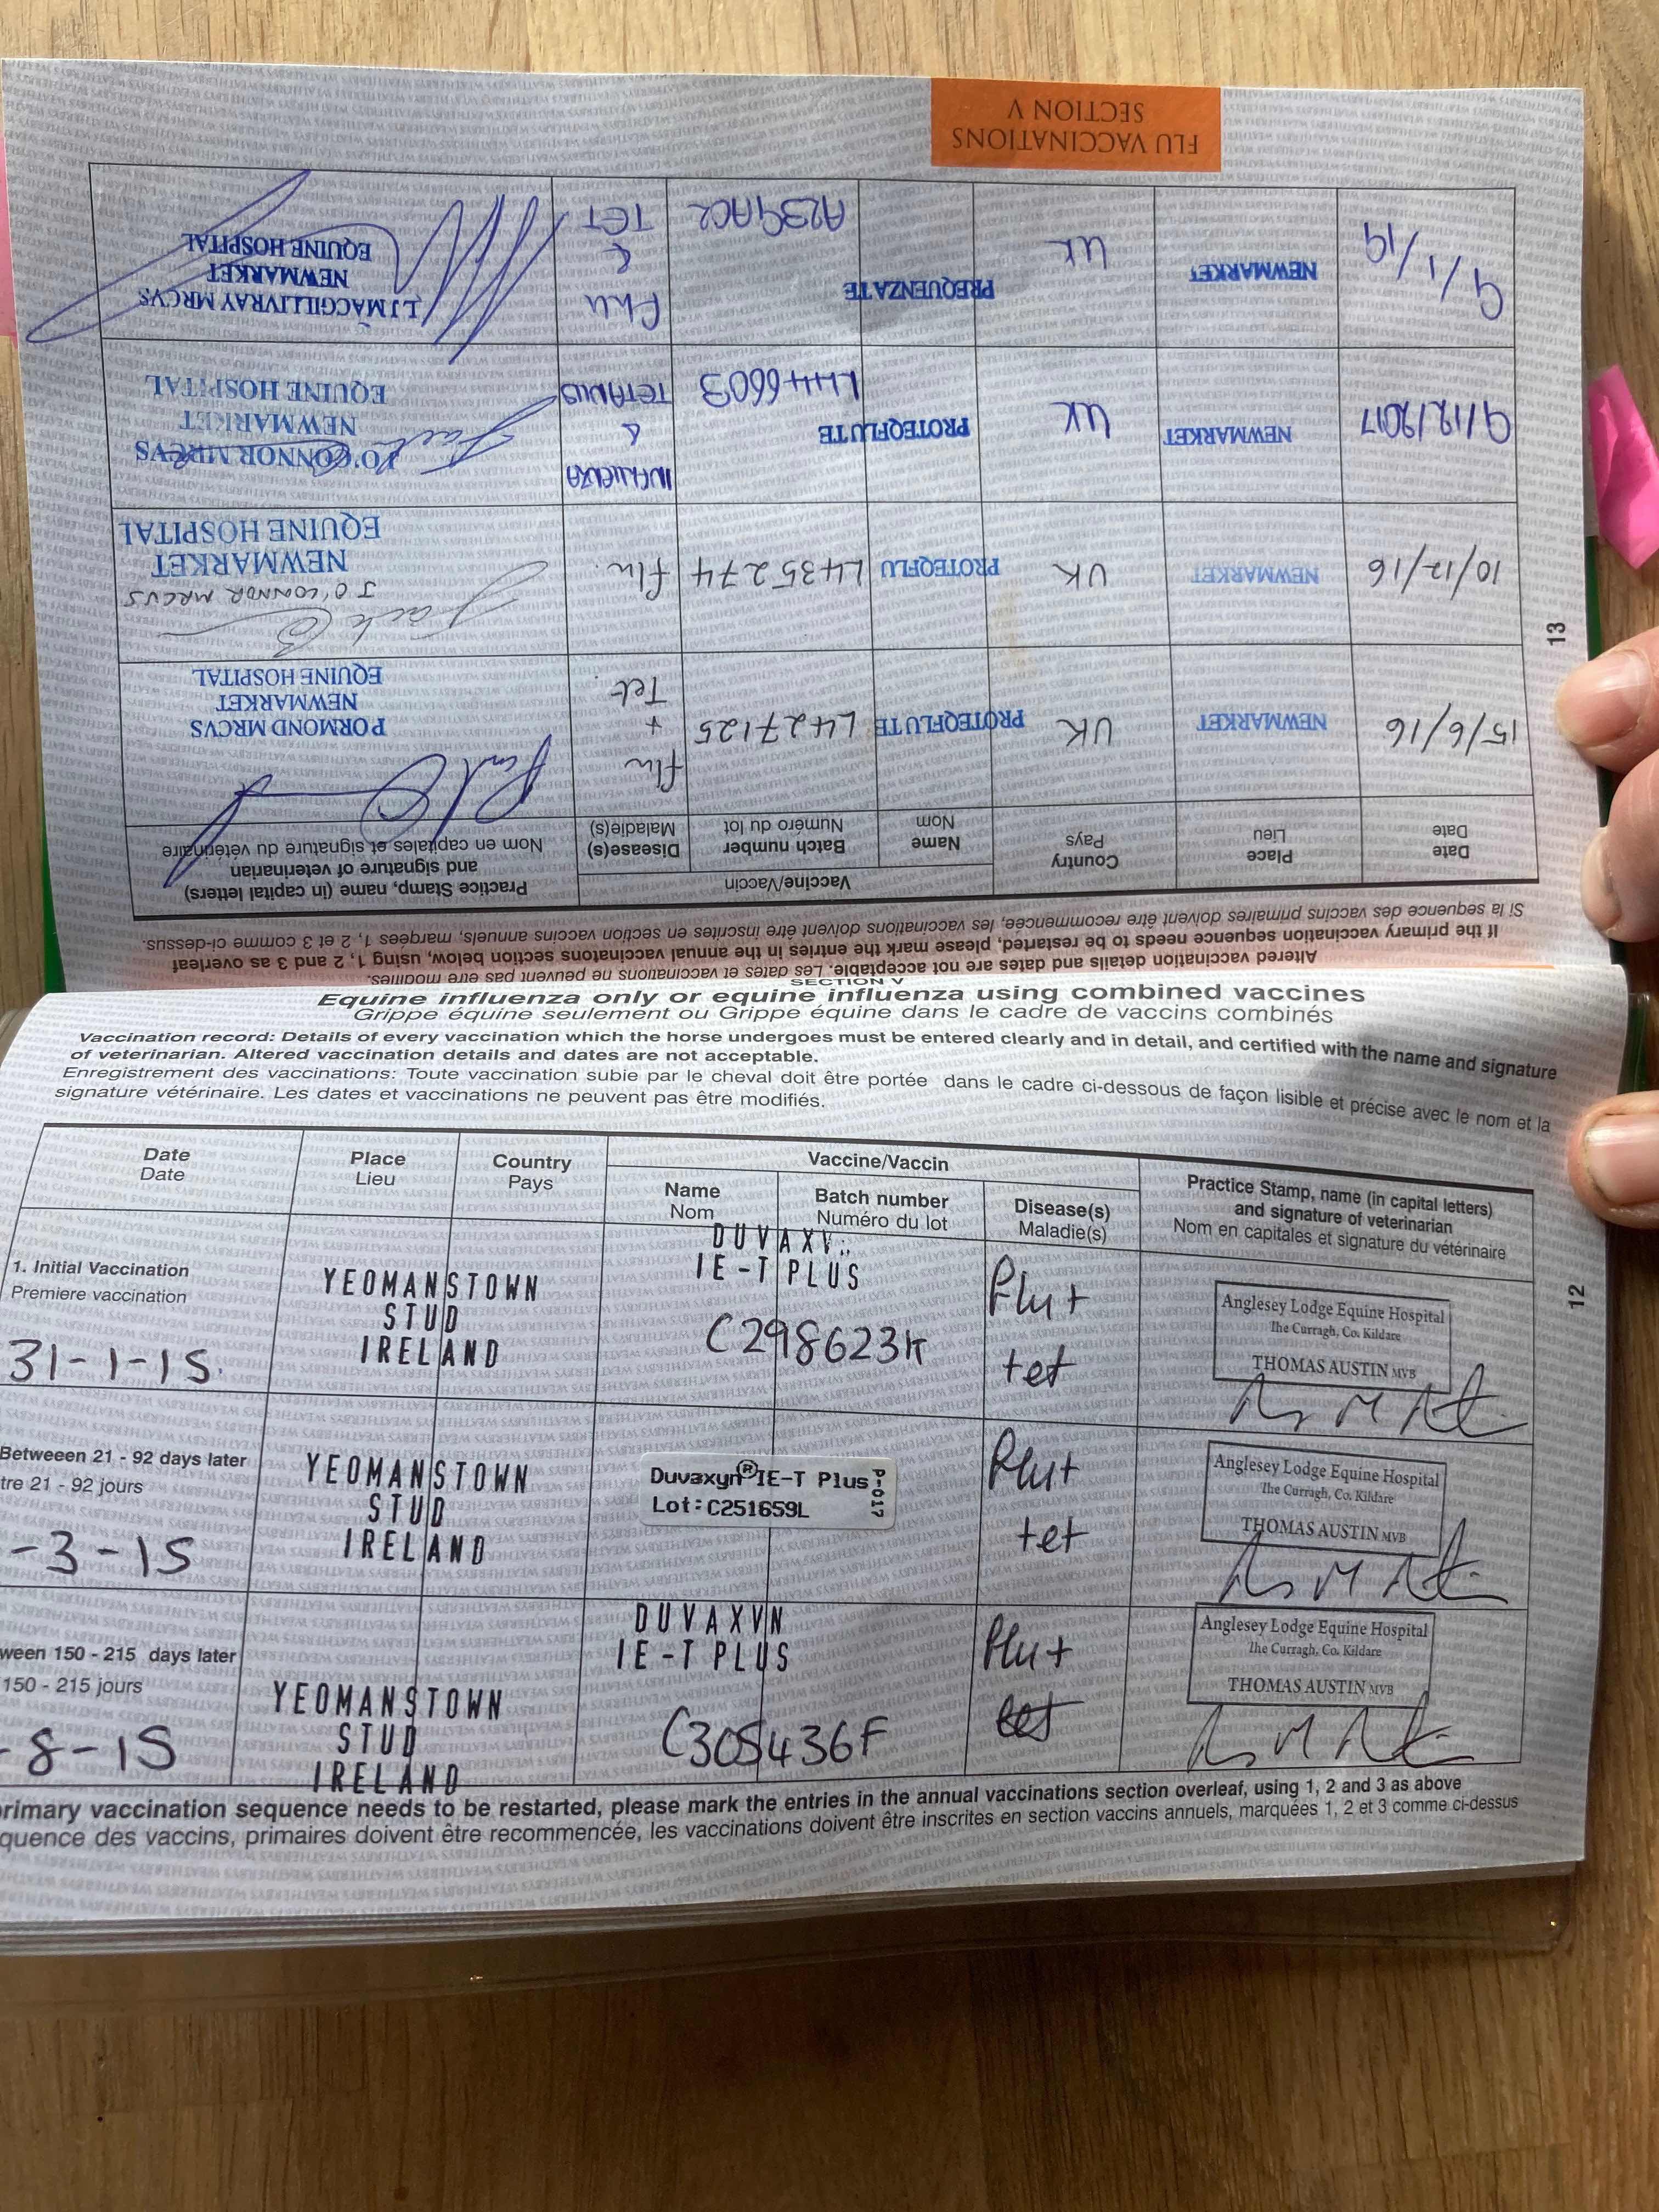 SECTION V
Equine influenza only or equine influenza using combined vaccines
Grippe équine seulement ou Grippe équine dans le cadre de vaccins combinés
Vaccination record: Details of every vaccination which the horse undergoes must be entered clearly and in detail, and certified with the name and signature
of veterinarian. Altered vaccination details and dates are not acceptable.
Enregistrement des vaccinations: Toute vaccination subie par le cheval doit être portée dans le cadre ci-dessous de façon lisible et précise avec le nom et la
signature vétérinaire. Les dates et vaccinations ne peuvent pas être modifiés.
Date
Date
Place
Lieu
Country
Pays
Vaccine/Vaccin
Name
Nom
Batch number
Numéro du lot
Disease(s)
Maladie(s)
Practice Stamp, name (in capital letters)
and signature of veterinarian
Nom en capitales et signature du vétérinaire
1. Initial Vaccination
Premiere vaccination
31-1-15.
YEOMANSTOWN
STUD
IRELAND
IE-T PLUS
C298623K
Flu+
tet
Anglesey Lodge Equine Hospital
The Curragh, Co. Kildare
THOMAS AUSTIN MVB
Betweeen 21 - 92 days later
tre 21 - 92 jours
-3-15
YEOMANSTOWN
STUD
IRELAND
Duvaxyn® IE-T Plus
Lot:C251659L
P-017
Flu+
tet
Anglesey Lodge Equine Hospital
The Curragh, Co. Kildare
THOMAS AUSTIN MVB
ween 150 - 215 days later
150 - 215 jours
-8-15
YEOMANSTOWN
STUD
IRELAND
DUVAXYN
IE-T PLUS
C305436F
Flu+
tet
Anglesey Lodge Equine Hospital
The Curragh, Co. Kildare
THOMAS AUSTIN MVB
rimary vaccination sequence needs to be restarted, please mark the entries in the annual vaccinations section overleaf, using 1, 2 and 3 as above
quence des vaccins, primaires doivent être recommencée, les vaccinations doivent être inscrites en section vaccins annuels, marquées 1, 2 et 3 comme ci-dessus
12
Altered vaccination details and dates are not acceptable. Les dates et vaccinations ne peuvent pas être modifiés.
If the primary vaccination sequence needs to be restarted, please mark the entries in the annual vaccinatons section below, using 1, 2 and 3 as overleaf
Si la sequence des vaccins primaires doivent être recommencée, les vaccinations doivent être inscrites en section vaccins annuels, marqées 1, 2 et 3 comme ci-dessus.
Date
Date
Place
Lieu
Country
Pays
Vaccine/Vaccin
Name
Nom
Batch number
Numéro du lot
Disease(s)
Maladie(s)
Practice Stamp, name (in capital letters)
and signature of veterinarian
Nom en capitales et signature du vétérinaire
15/6/16
NEWMARKET
UK
PROTEQFLUTE
L427125
Flu
+
Tet
PORMOND MRCVS
NEWMARKET
EQUINE HOSPITAL
10/12/16
NEWMARKET
UK
PROTEQFLU
L435274
flu.
J O'CONNOR MRCVS
NEWMARKET
EQUINE HOSPITAL
9/12/2017
NEWMARKET
UK
PROTEQFLUTE
L446603
INFLUENZA
&
TETANUS
J O'CONNOR MRCVS
NEWMARKET
EQUINE HOSPITAL
9/1/19
NEWMARKET
UK
PREQUENZA TE
A239AC2
Flu
&
TET
L J MACGILLIVRAY MRCVS
NEWMARKET
EQUINE HOSPITAL
13
FLU VACCINATIONS
SECTION V